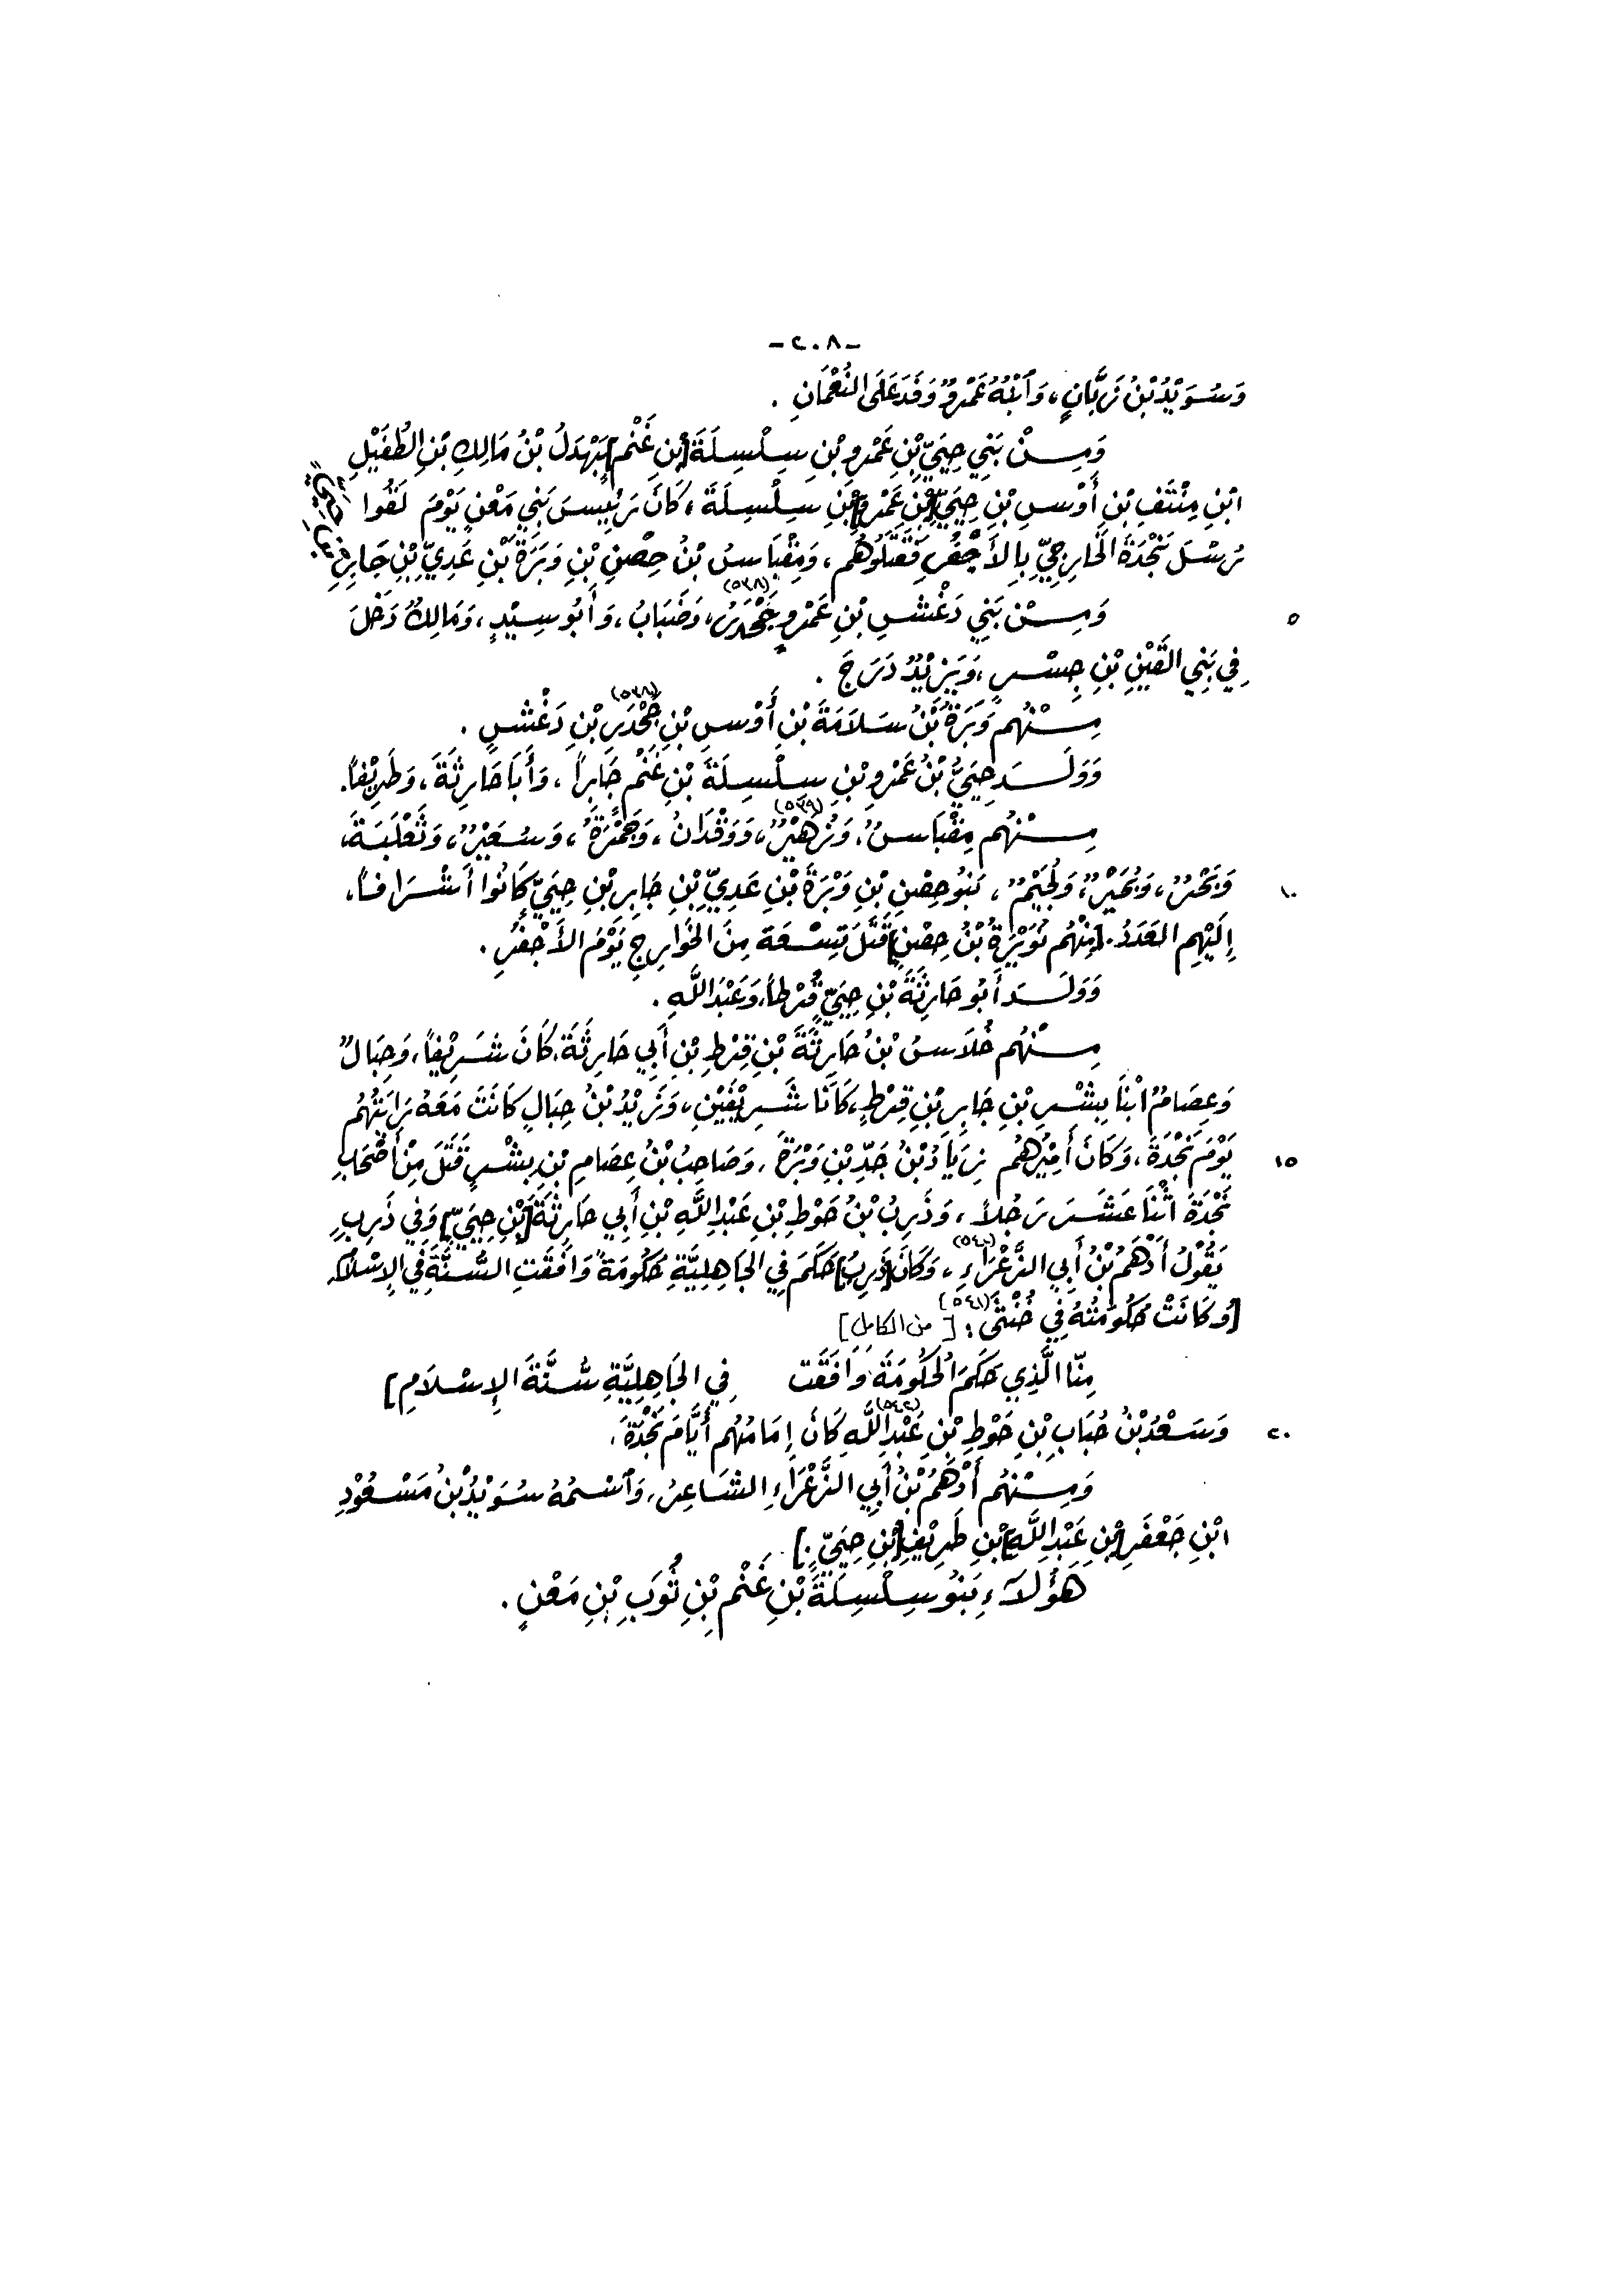 -٢٠٨-
وَسُوَيْدُ بْنُ زَبَّانٍ، وَابْنُهُ عَمْرٌو وَفَدَ عَلَى النُّعْمَانِ.
وَمِنْ بَنِي حِيَيِّ بْنِ عَمْرِو بْنِ سِلْسِلَةَ [بْنِ غَنْمٍ] بَهْدَلُ بْنُ مَالِكِ بْنِ الطُّفَيْلِ
ابْنِ مِنْتَفِ بْنِ أَوْسِ بْنِ حِيَيِّ [بْنِ عَمْرِو] بْنِ سِلْسِلَةَ، كَانَ رَئِيسَ بَنِي مَعْنٍ يَوْمَ لَقُوا
رُسُلَ نَجْدَةَ الْخَارِجِيِّ بِالأَجْفُرِ فَقَتَلُوهُم، وَمِقْبَاسُ بْنُ حِصْنِ بْنِ وَبَرَةَ بْنِ عَدِيِّ بْنِ جَابِرِ بْنِ حِيَيٍّ
٥ وَمِنْ بَنِي دَغْشِ بْنِ عَمْرٍو جَحْدَرٌ (٥٣٨)، وَضَبَابٌ، وَأَبُو سِيْدٍ، وَمَالِكٌ دَخَلَ
فِي بَنِي الْقَيْنِ بْنِ جِسْرٍ، وَيَزِيْدُ دَرَجَ.
مِنْهُم وَبَرَةُ بْنُ سَلَامَةَ بْنِ أَوْسِ بْنِ جَحْدَرِ (٥٣٨) بْنِ دَغْشٍ.
وَوَلَدَ حِيَيُّ بْنُ عَمْرِو بْنِ سِلْسِلَةَ بْنِ غَنْمٍ جَابِراً، وَأَبَا حَارِثَةَ، وَطَرِيْفاً.
مِنْهُم مِقْبَاسٌ، وَزُهَيْرٌ (٥٣٩)، وَوَقْدَانُ، وَجَمْرَةُ، وَسُعَيْرٌ، وَثَعْلَبَةَ،
١٠ وَبَحْرٌ، وَبُحَيْرٌ، وَلُجَيْمٌ، بَنُو حِصْنِ بْنِ وَبَرَةَ بْنِ عَدِيِّ بْنِ جَابِرِ بْنِ حِيَيٍّ كَانُوا أَشْرَافاً،
إِلَيْهِمِ الْعَدَدُ. [مِنْهُم نُوَيْرَةُ بْنُ حِصْنٍ] قَتَلَ تِسْعَةً مِنَ الْخَوَارِجِ يَوْمَ الأَجْفُرِ.
وَوَلَدَ أَبُو حَارِثَةَ بْنِ حِيَيٍّ قُرْطاً، وَعَبْدَ اللَّهِ.
مِنْهُم خُلَاسُ بْنُ حَارِثَةَ بْنِ قِرْطِ بْنِ أَبِي حَارِثَةَ، كَانَ شَرِيْفاً، وَحِبَالٌ
وَعِصَامٌ ابْنَا بِشْرِ بْنِ جَابِرِ بْنِ قِرْطٍ، كَانَا شَرِيْفَيْنِ، وَزَيْدُ بْنُ حِبَالٍ كَانَتْ مَعَهُ رَايَتُهُمْ
١٥ يَوْمَ نَجْدَةَ، وَكَانَ أَمِيْرُهُم زِيَادُ بْنُ جَدِّ بْنِ وَبْرَةَ، وَصَاحِبُ بْنُ عِصَامِ بْنِ بِشْرٍ قَتَلَ مِنْ أَصْحَابِ
نَجْدَةَ اثْنَا عَشَرَ رَجُلاً، وَذَرِبُ بْنُ حَوْطِ بْنِ عَبْدِ اللَّهِ بْنِ أَبِي حَارِثَةَ [بْنِ حِيَيٍّ] وَفِي ذَرِبٍ
يَقُوْلُ أَدْهَمُ بْنُ أَبِي الزَّعْرَاءِ (٥٤٠)، وَكَانَ [ذَرِبٌ] حَكَمَ فِي الْجَاهِلِيَّةِ حُكُومَةً وَافَقَتِ السُّنَّةَ فِي الإِسْلَامِ
[وَكَانَتْ حُكُومَتُهُ فِي خُنْثَى (٥٤١): [من الكامل]
مِنّا الَّذِي حَكَمَ الْحُكُومَةَ وَافَقَت فِي الْجَاهِلِيَّةِ سُنَّةَ الإِسْلَامِ]
٢٠ وَسَعْدُ بْنُ حُبَابِ بْنِ حَوْطِ بْنِ عَبْدِ اللَّهِ (٥٤٢) كَانَ إِمَامُهُم أَيَّامَ نَجْدَةَ.
وَمِنْهُم أَدْهَمُ بْنُ أَبِي الزَّعْرَاءِ الشَّاعِرُ، وَاسْمُهُ سُوَيْدُ بْنُ مَسْعُوْدِ
ابْنِ جَعْفَرِ [بْنِ عَبْدِ اللَّهِ] بْنِ طَرِيْفِ [بْنِ حِيَيٍّ.]
هَؤُلاَءِ بَنُو سِلْسِلَةَ بْنِ غَنْمِ بْنِ ثُوَبِ بْنِ مَعْنٍ.